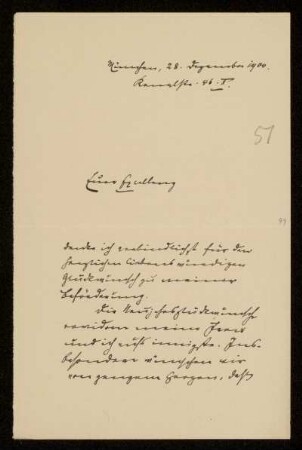 München, 28. Dezember 1900.
Kanalstr. 46 I.
51
Euer Exzellenz
danke ich verbindlichst für den
herzlichen liebenswürdigen
Glückwunsch zu meiner
Beförderung.
Die Neujahrsglückwünsche
erwidern meine Frau
und ich aufs innigste. Ins-
besondere wünschen wir
von ganzem Herzen, daß